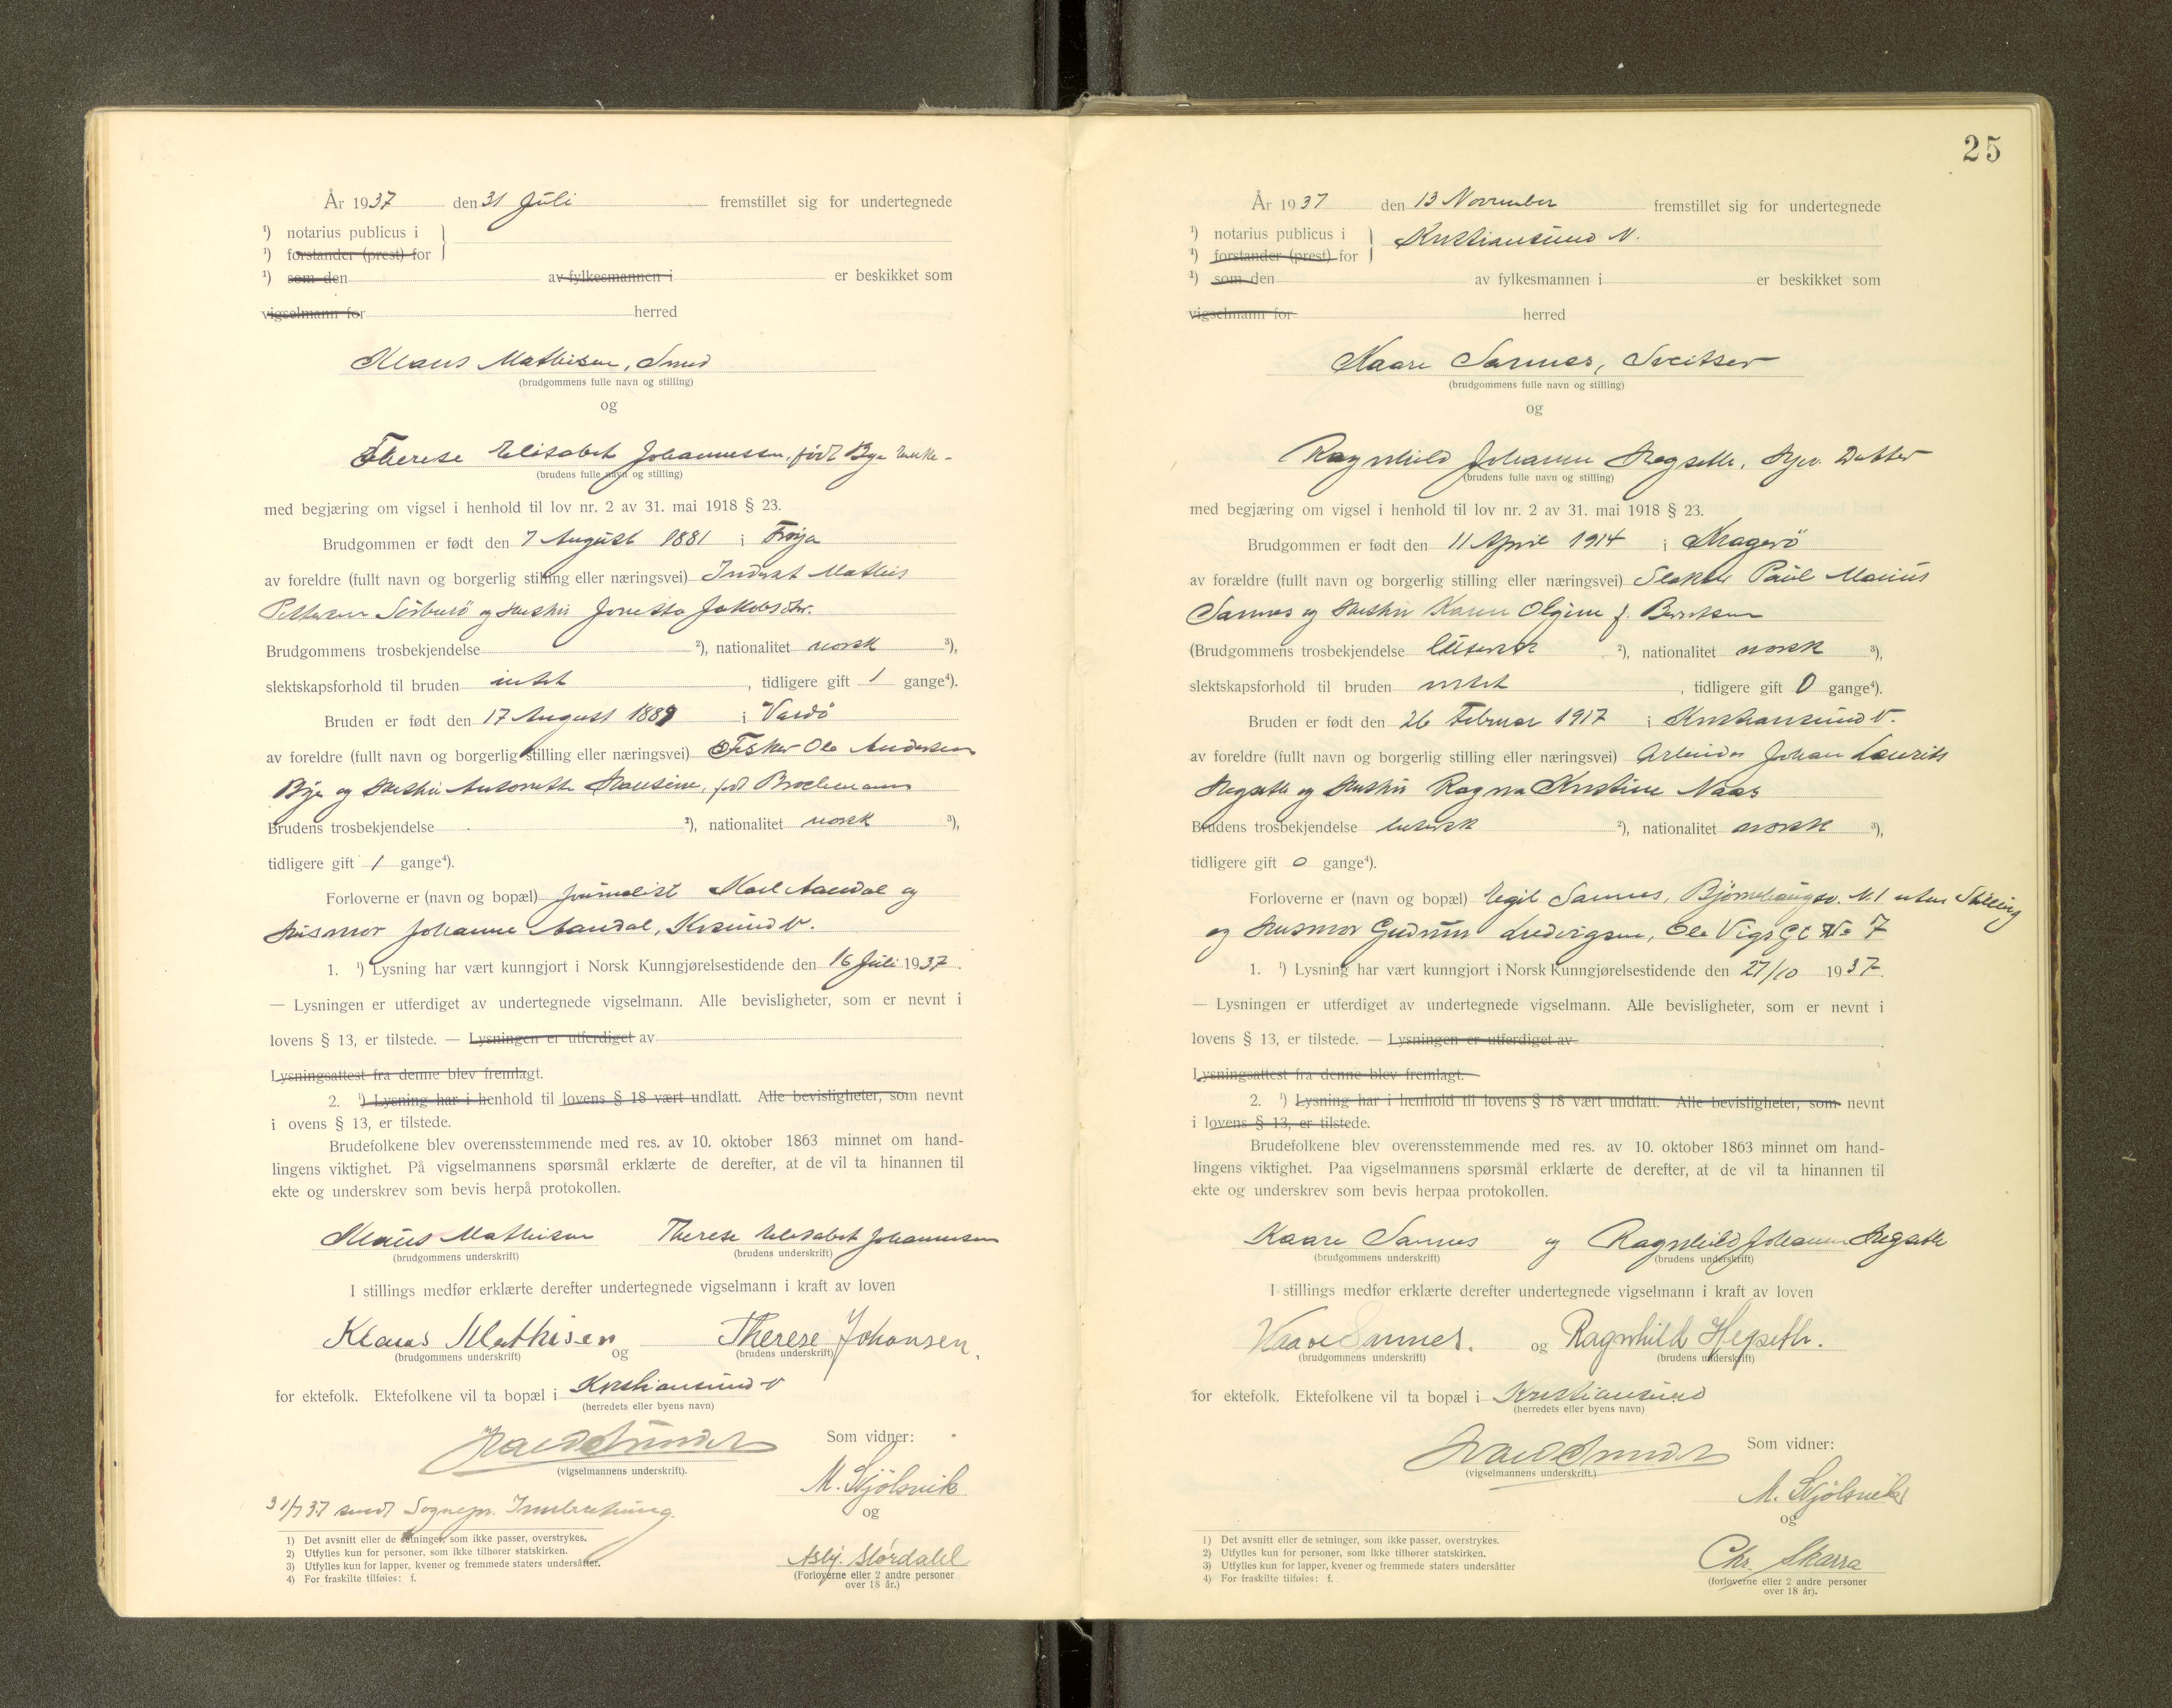 År 1937 den 31 Juli fremstillet sig for undertegnede
¹) notarius publicus i
¹) forstander (prest) for
¹) som den av fylkesmannen i er beskikket som
vigselmann for herred
Klaus Mathisen, Smed
(brudgommens fulle navn og stilling)
og
Therese Elisabet Johannessen, født Bye Enke-
(brudens fulle navn og stilling)
med begjæring om vigsel i henhold til lov nr. 2 av 31. mai 1918 § 23.
Brudgommen er født den 7 August 1881 i Frøya
av foreldre (fullt navn og borgerlig stilling eller næringsvei) Inderst Mathis
Pettersen Sörburö og Hustru Jonetta Jakobsdtr.
Brudgommens trosbekjendelse ²), nationalitet norsk ³),
slektskapsforhold til bruden intet, tidligere gift 1 gange⁴).
Bruden er født den 17 August 1889 i Vardö
av foreldre (fullt navn og borgerlig stilling eller næringsvei) Fisker Ole Andersen
Bye og Hustru Antonette Hansine, født Brochmann
Brudens trosbekjendelse ²), nationalitet norsk ³),
tidligere gift 1 gange⁴).
Forloverne er (navn og bopæl) Journalist Karl Aandal og
Husmor Johanne Aandal, Krsund N.
1. ¹) Lysning har vært kunngjort i Norsk Kunngjørelsestidende den 16 Juli 1937.
— Lysningen er utferdiget av undertegnede vigselmann. Alle bevisligheter, som er nevnt i
lovens § 13, er tilstede. — Lysningen er utferdiget av
Lysningsattest fra denne blev fremlagt.
2. ¹) Lysning har i henhold til lovens § 18 vært undlatt. Alle bevisligheter, som nevnt
i ovens § 13, er tilstede.
Brudefolkene blev overensstemmende med res. av 10. oktober 1863 minnet om hand-
lingens viktighet. På vigselmannens spørsmål erklærte de derefter, at de vil ta hinannen til
ekte og underskrev som bevis herpå protokollen.
Klaus Mathisen Therese Elisabet Johannessen
(brudgommens underskrift) (brudens underskrift)
I stillings medfør erklærte derefter undertegnede vigselmann i kraft av loven
Klaus Mathisen og Therese Johansen.
(brudgommens underskrift) (brudens underskrift)
for ektefolk. Ektefolkene vil ta bopæl i Kristiansund N
(herredets eller byens navn)
Som vidner:
(vigselmannens underskrift).
M. Skjölsvik
og
31/7 37 sendt Sognepr. Innberetning.
Asbj. Størdahl
(Forloverne eller 2 andre personer
over 18 år.)
1) Det avsnitt eller de setninger, som ikke passer, overstrykes.
2) Utfylles kun for personer, som ikke tilhører statskirken.
3) Utfylles kun for lapper, kvener og fremmede staters undersåtter.
4) For fraskilte tilføies: f.
25
År 1937 den 13 November fremstillet sig for undertegnede
¹) notarius publicus i
¹) forstander (prest) for
Kristiansund N.
¹) som den av fylkesmannen i er beskikket som
vigselmann for herred
Kaare Sannes, Sveitser
(brudgommens fulle navn og stilling)
og
Ragnhild Johanne Hegseth, Hjv. Datter
(brudens fulle navn og stilling)
med begjæring om vigsel i henhold til lov nr. 2 av 31. mai 1918 § 23.
Brudgommen er født den 11 April 1914 i Kragerö
av forældre (fullt navn og borgerlig stilling eller næringsvei) Slakter Paul Marius
Sannes og Hustru Karen Olgine f. Berntsen
(Brudgommens trosbekjendelse luthersk ²), nationalitet norsk ³),
slektskapsforhold til bruden intet, tidligere gift 0 gange⁴).
Bruden er født den 26 Februar 1917 i Kristiansund N.
av foreldre (fullt navn og borgerlig stilling eller næringsvei) Arbeider Johan Laurits
Hegseth og Hustru Ragna Kristine Naas
Brudens trosbekjendelse luthersk ²), nationalitet norsk ³),
tidligere gift 0 gange⁴).
Forloverne er (navn og bopæl) Egil Sannes, Bjørnehaugsv. N. 1 uten Stilling
og Husmor Gudrun Ludvigsen, Ole Vigs Gt No 7
1. ¹) Lysning har vært kunngjort i Norsk Kunngjørelsestidende den 27/10 1937.
— Lysningen er utferdiget av undertegnede vigselmann. Alle bevisligheter, som er nevnt i
lovens § 13, er tilstede. — Lysningen er utferdiget av
Lysningsattest fra denne blev fremlagt.
2. ¹) Lysning har i henhold til lovens § 18 vært undlatt. Alle bevisligheter, som nevnt
i lovens § 13, er tilstede.
Brudefolkene blev overensstemmende med res. av 10. oktober 1863 minnet om hand-
lingens viktighet. Paa vigselmannens spørsmål erklærte de derefter, at de vil ta hinannen til
ekte og underskrev som bevis herpaa protokollen.
Kaare Sannes og Ragnhild Johanne Hegseth
(brudgommens underskrift) (brudens underskrift)
I stillings medfør erklærte derefter undertegnede vigselmann i kraft av loven
Kaare Sannes. og Ragnhild Hegseth.
(brudgommens underskrift) (brudens underskrift)
for ektefolk. Ektefolkene vil ta bopæl i Kristiansund
(herredets eller byens navn)
Som vidner:
(vigselmannens underskrift.)
M. Skjölsvik
og
Chr. Skarra
(forloverne eller 2 andre personer
over 18 år).
1) Det avsnitt eller de setninger, som ikke passer, overstrykes.
2) Utfylles kun for personer, som ikke tilhører statskirken.
3) Utfylles kun for lapper, kvener og fremmede staters undersåtter
4) For fraskilte tilføies: f.